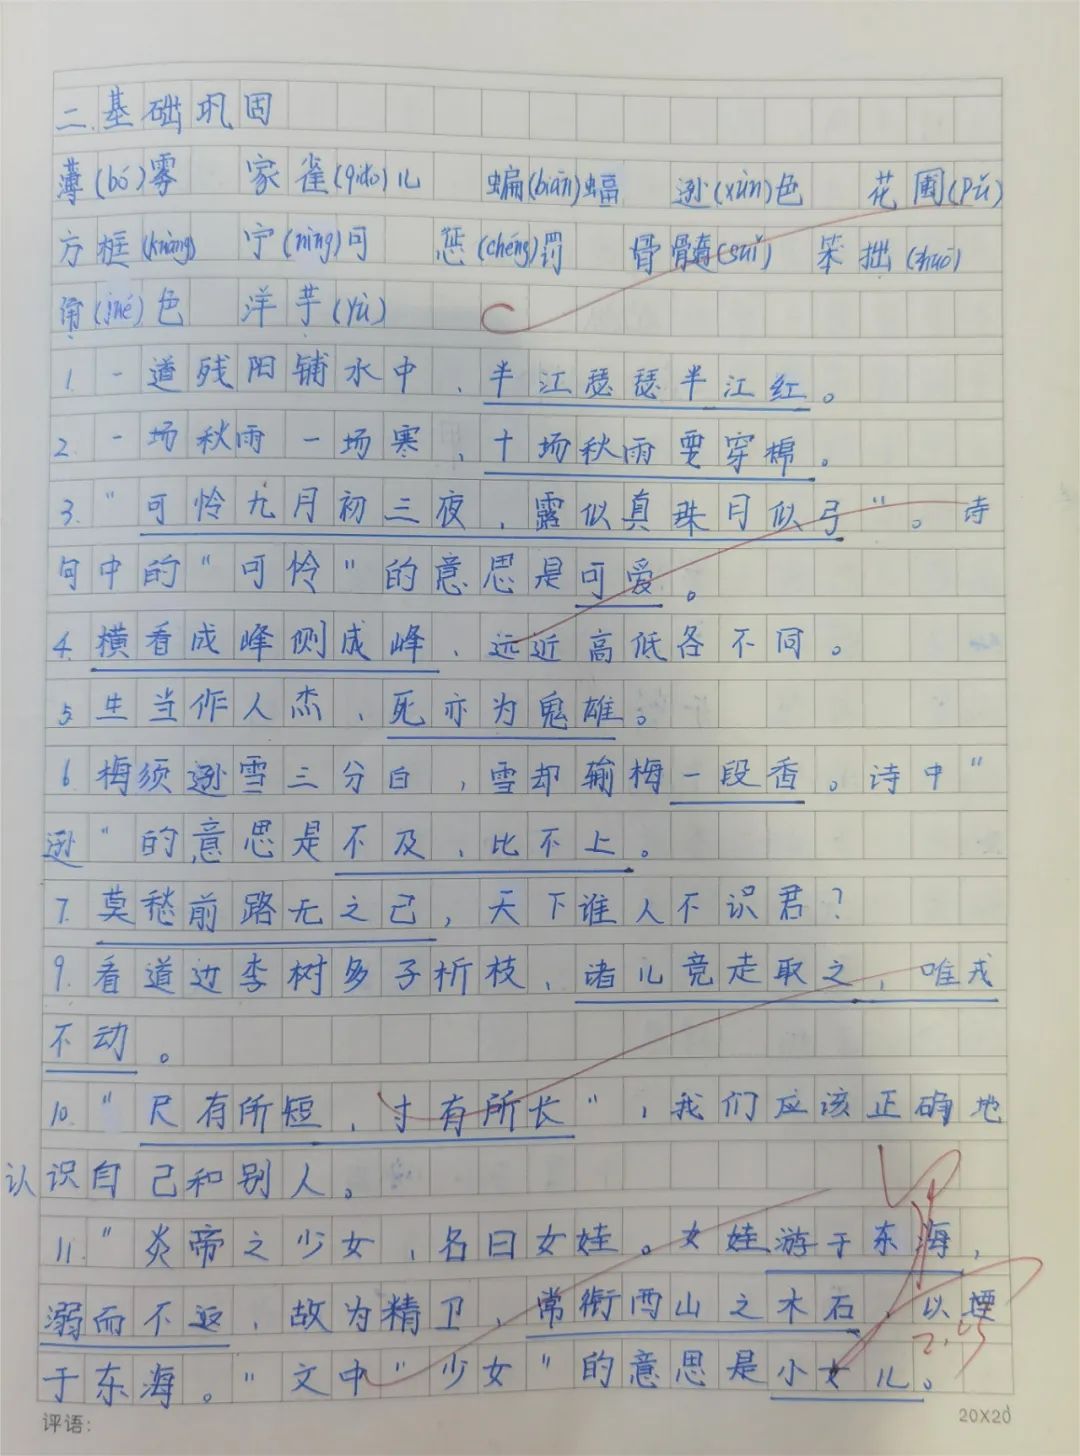 二.基础巩固
薄(bó)雾 家雀(qiǎo)儿 蝙(biān)蝠 逊(xùn)色 花圃(pǔ)
方框(kuàng) 宁(nìng)可 惩(chéng)罚 骨髓(suǐ) 笨拙(zhuō)
角(jué)色 洋芋(yù)
1.一道残阳铺水中,半江瑟瑟半江红。
2.一场秋雨一场寒,十场秋雨要穿棉。
3."可怜九月初三夜,露似真珠月似弓"。诗
句中的"可怜"的意思是可爱。
4.横看成峰侧成峰、远近高低各不同。
5.生当作人杰,死亦为鬼雄。
6.梅须逊雪三分白,雪却输梅一段香。诗中"
逊"的意思是不及,比不上。
7.莫愁前路无之己,天下谁人不识君?
9.看道边李树多子折枝,诸儿竞走取之,唯戎
不动。
10."尺有所短,寸有所长",我们应该正确地
认识自己和别人。
11."炎帝之少女,名曰女娃。女娃游于东海,
溺而不返,故为精卫,常衔西山之木石,以堙
于东海。"文中"少女"的意思是小女儿。
评语:
20X20